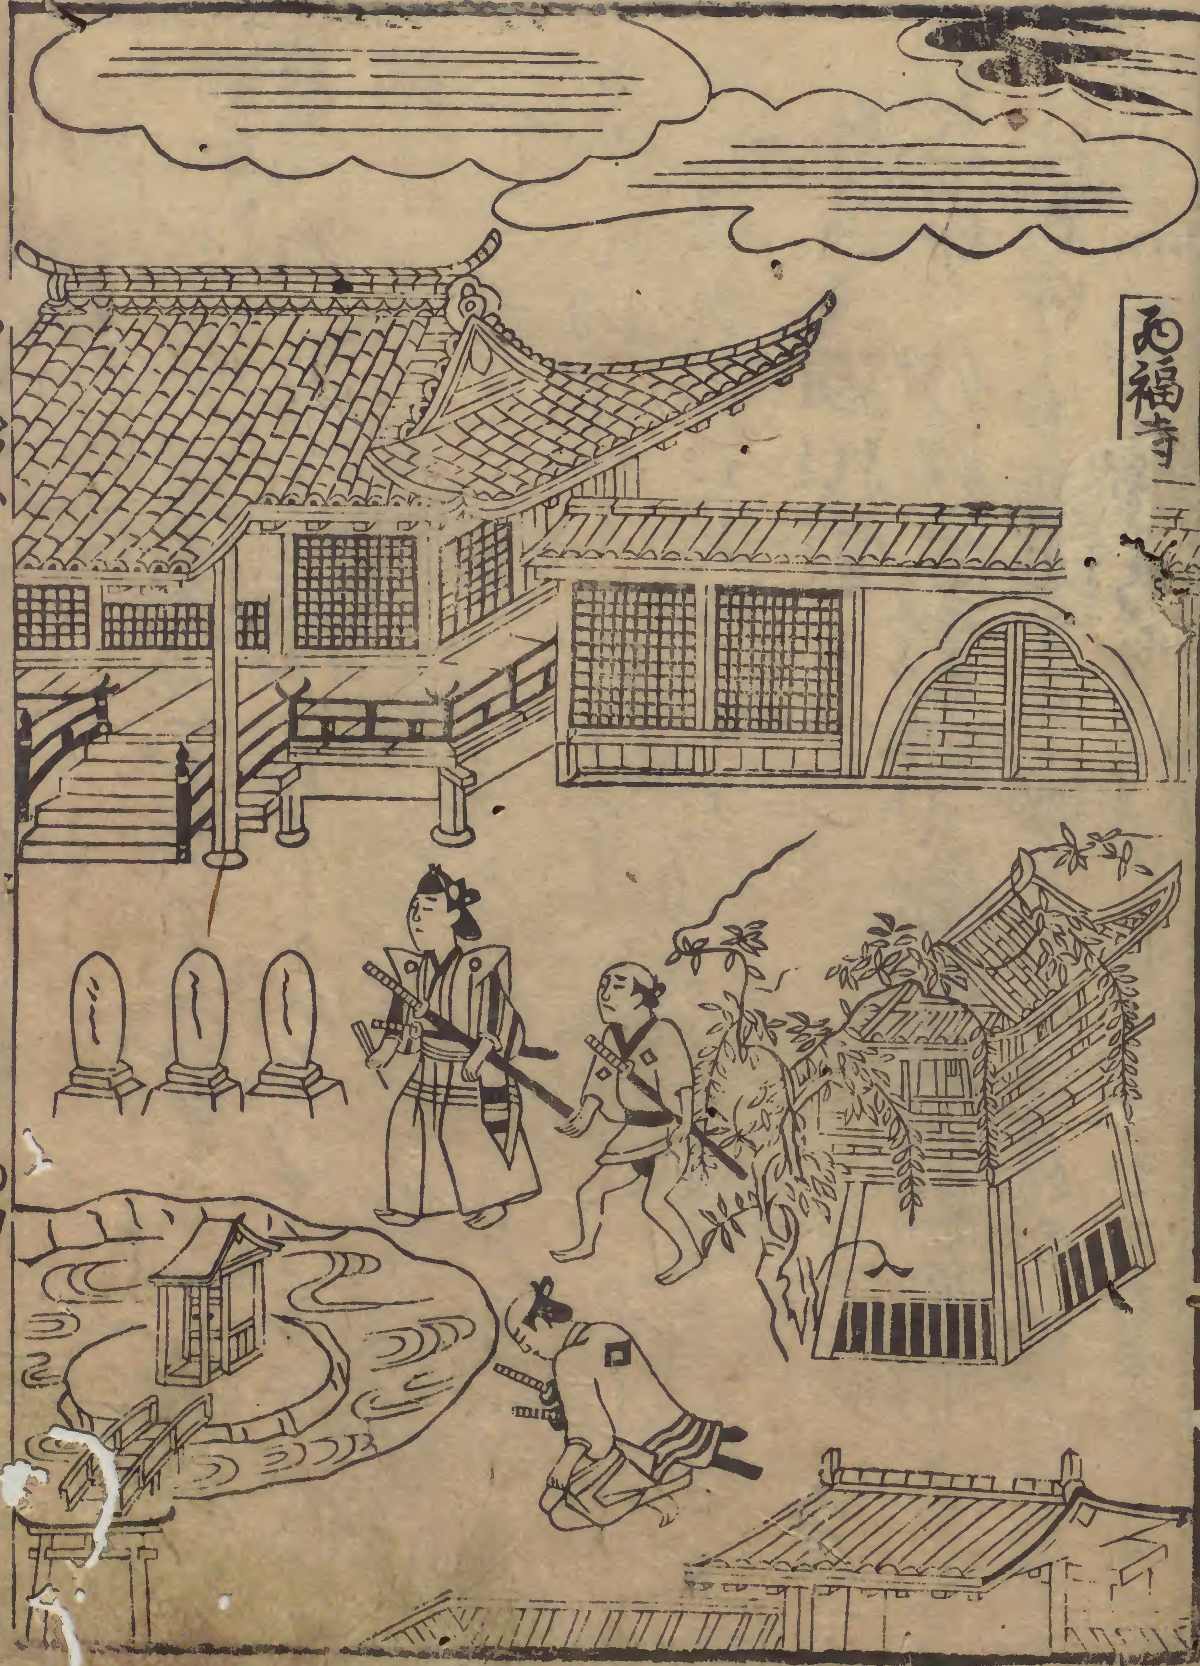 西福寺